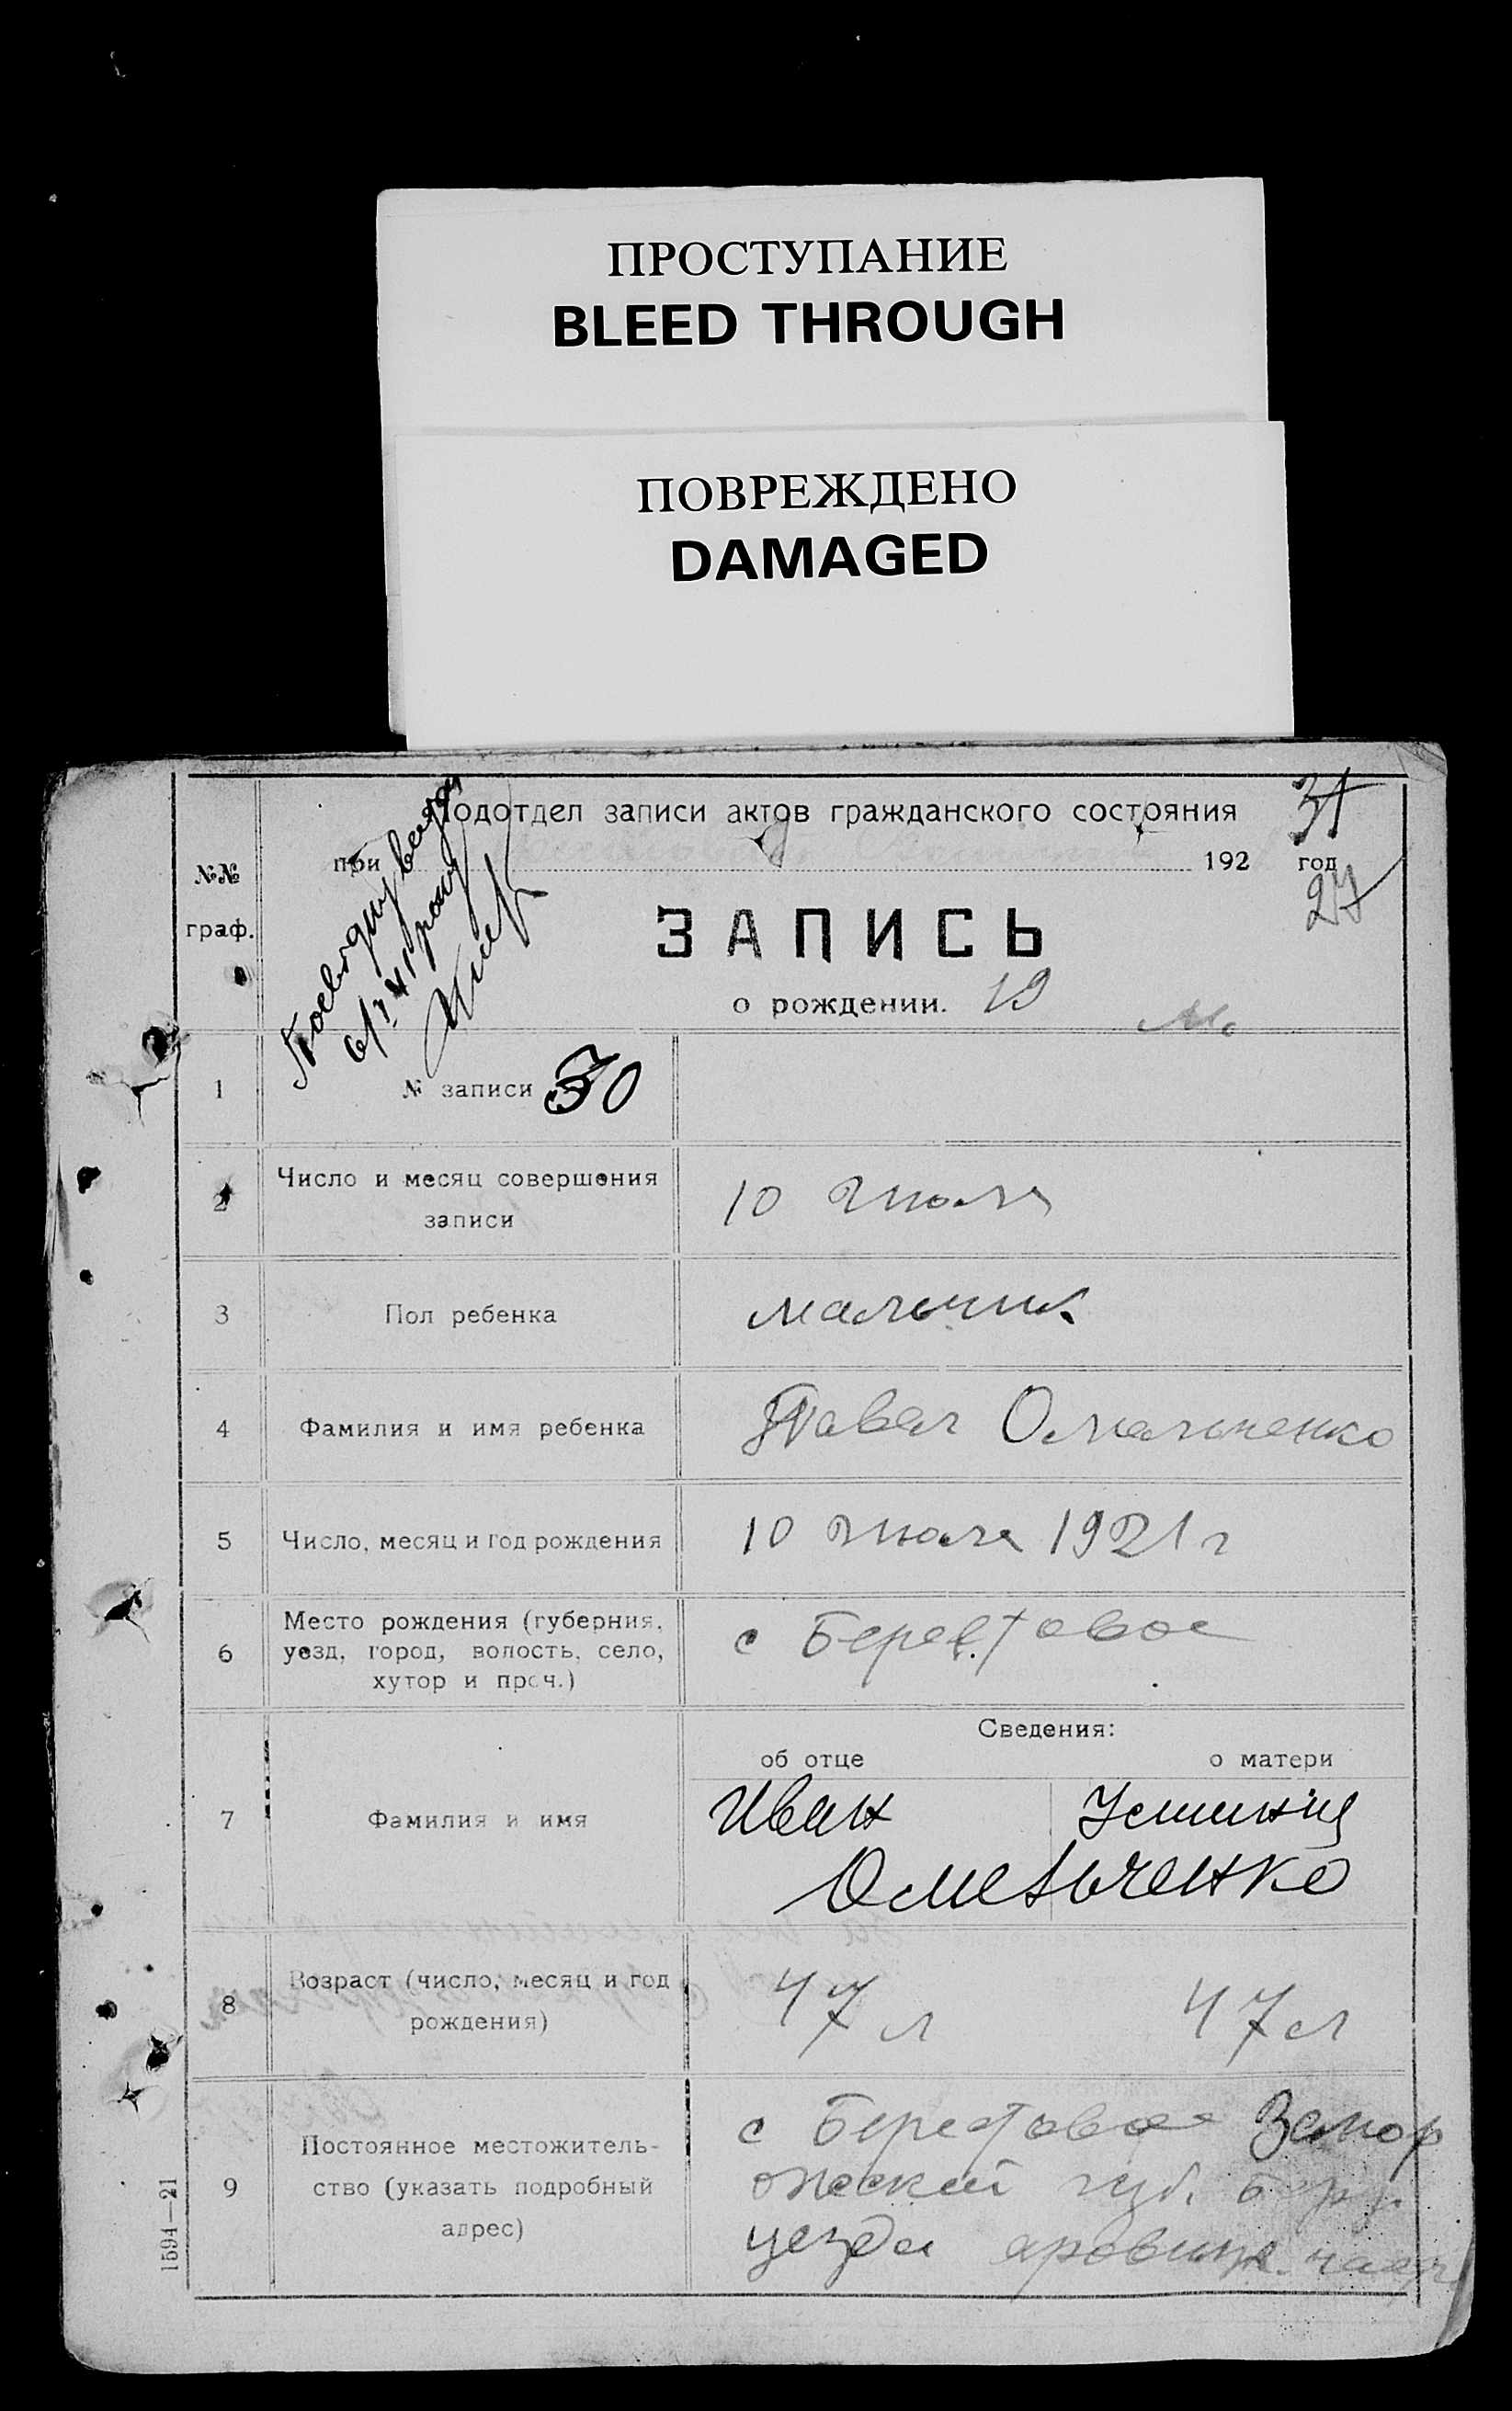 ПРОСТУПАНИЕ
BLEED THROUGH
ПОВРЕЖДЕНО
DAMAGED
Подотдел записи актов гражданского состояния
31
при 192 год
27
№№
граф.
ЗАПИСЬ
о рождении. 19
М.
1 № записи 30
2 Число и месяц совершения
записи
10 июля
3 Пол ребенка мальчик
4 Фамилия и имя ребенка Павел Омельченко
5 Число, месяц и год рождения 10 июля 1921 г
6 Место рождения (губерния,
уезд, город, волость, село,
хутор и проч.)
с Берестовое
Сведения:
об отце о матери
7 Фамилия и имя
Иван Устиния
Омельченко
8 Возраст (число, месяц и год
рождения)
47 л 47 л
9 Постоянное местожитель-
ство (указать подробный
адрес)
с Берестовое Запор
ожской губ. Берд.
уезда
1594—21